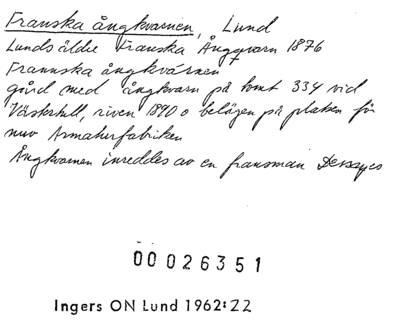 Franska ångkvarnen, Lund
Lunds äldre Franska Ånggvarn 1876
Frannska ångkvarnen
gård med ångkvarn på tomt 334 vid
Västertull, riven 1890 o belägen på platsen för
nuv Armaturfabriken
Ångkvarnen inreddes av en fransman
00026351
Ingers ON Lund 1962:22